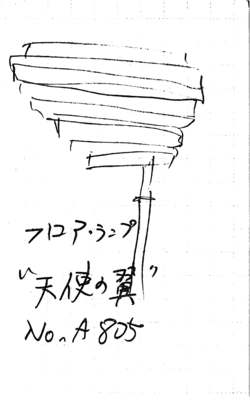 フロア・ランプ
"天使の翼"
No. A 805